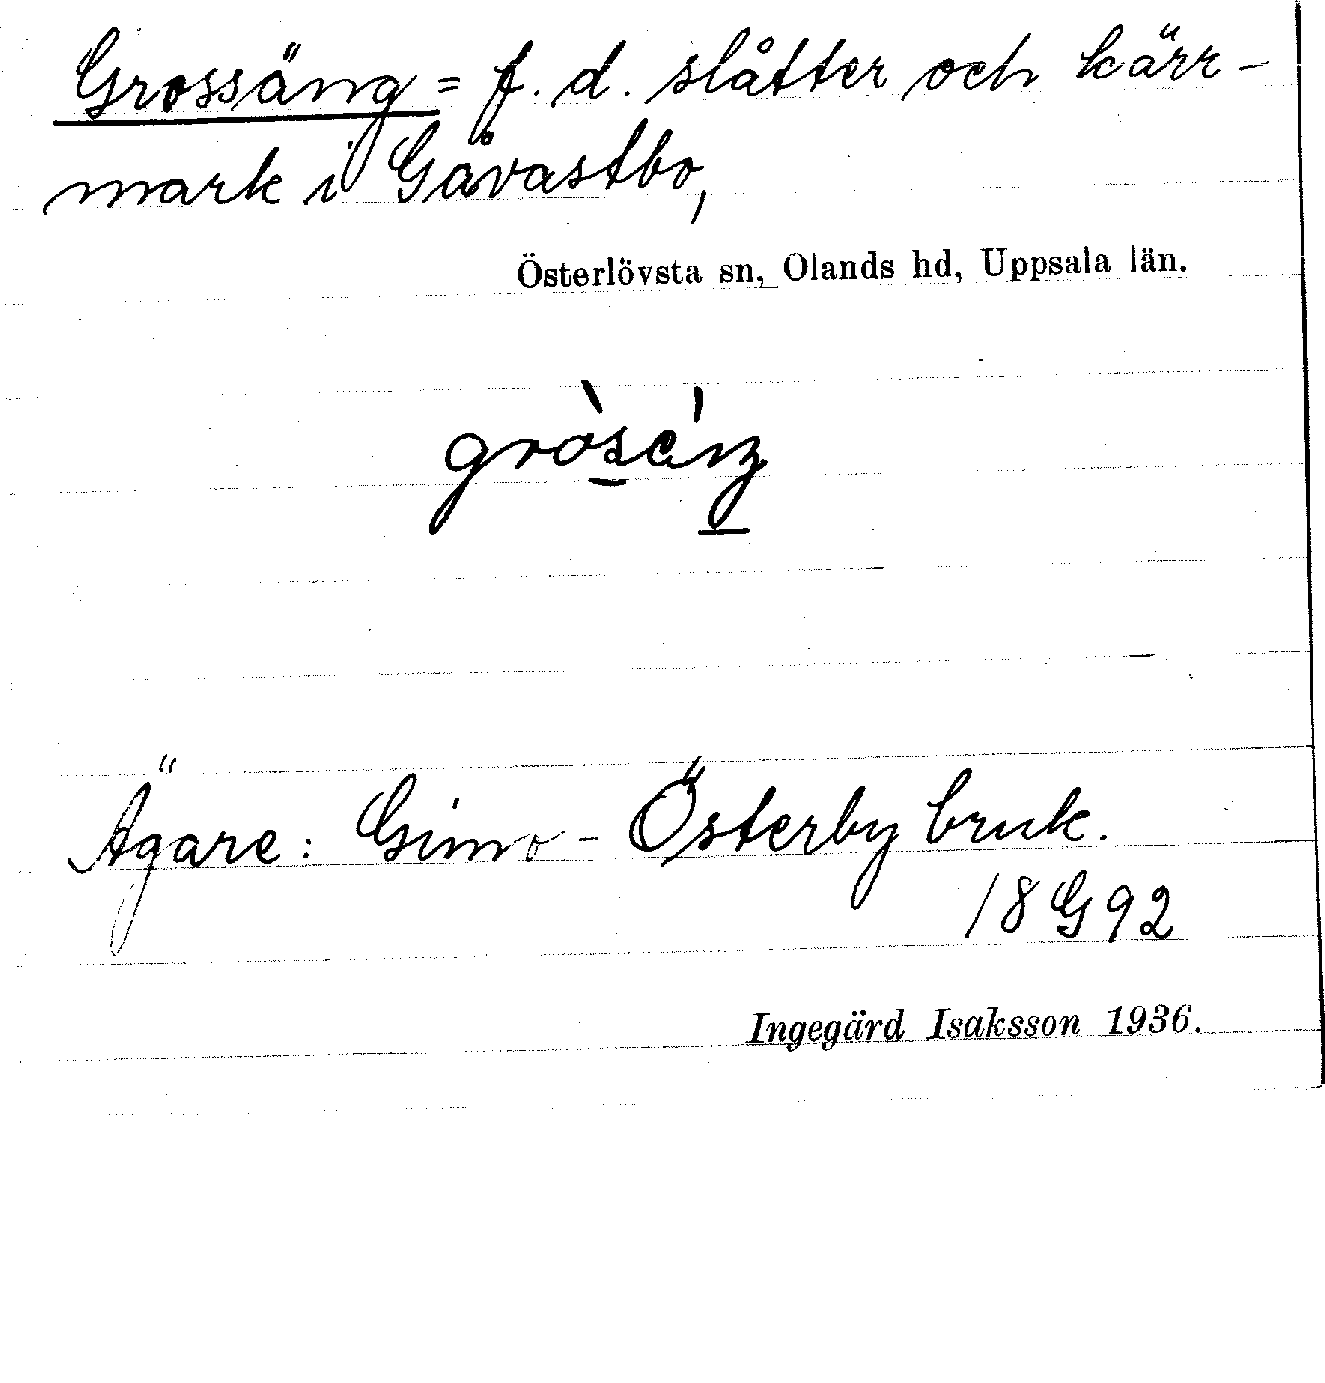 Grossäng = f. d. slåtter och kärr-
mark i Gåvastbo,
Österlövsta sn, Olands hd, Uppsala län.
Ägare: Gimo-Österby bruk.
18 G 92
Ingegärd Isaksson 1936.